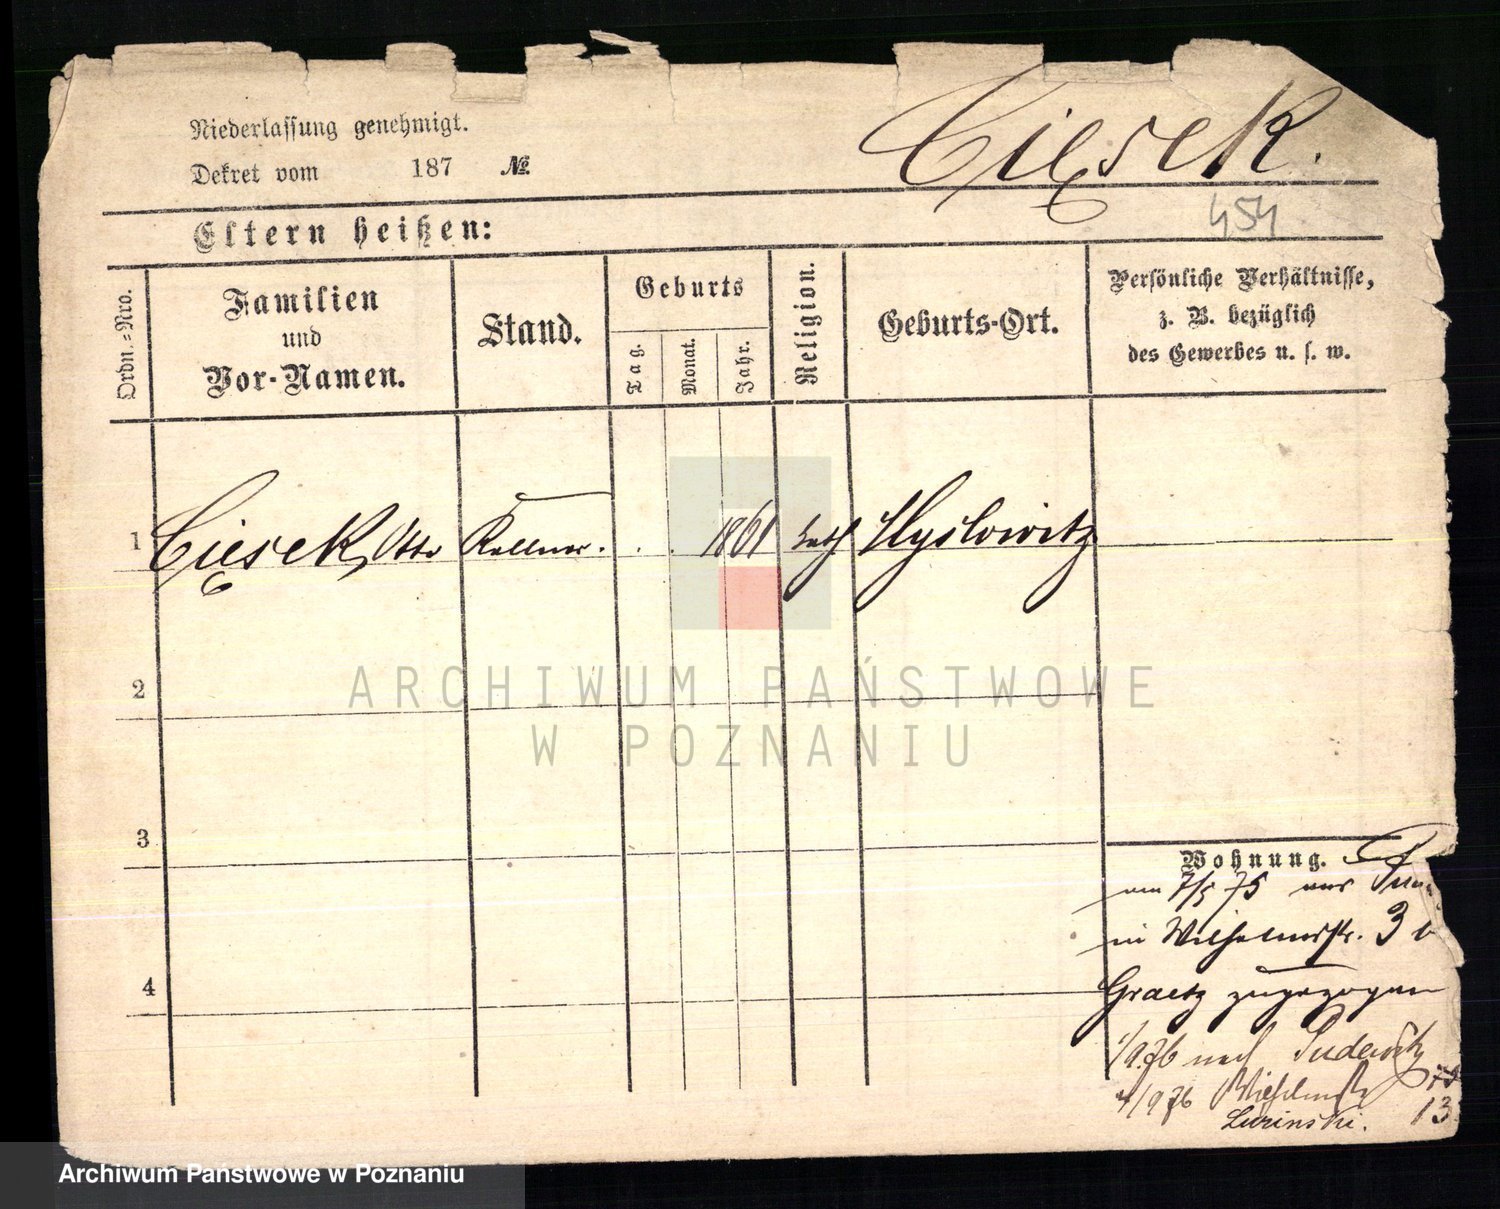 Niederlassung genehmigt.
Dekret vom 187 №
Ciesek.
454
Eltern heißen:
Ordn.=Nro.
Familien
und
Vor-Namen.
Stand.
Geburts
Tag.
Monat.
Jahr.
Religion.
Geburts-Ort.
Persönliche Verhältnisse,
z. B. bezüglich
des Gewerbes u. s. w.
1 Ciesek Otto Kellner. . . 1861 kath Myslowitz
2
ARCHIWUM PAŃSTWOWE
W POZNANIU
3
Wohnung.
am 7/5 75 aus
in Wilhelmstr. 3 b
4
Graetz zugezogen
1/9.76 nach Pudewitz
4/9 76 Wilhelmstr
13
Archiwum Państwowe w Poznaniu